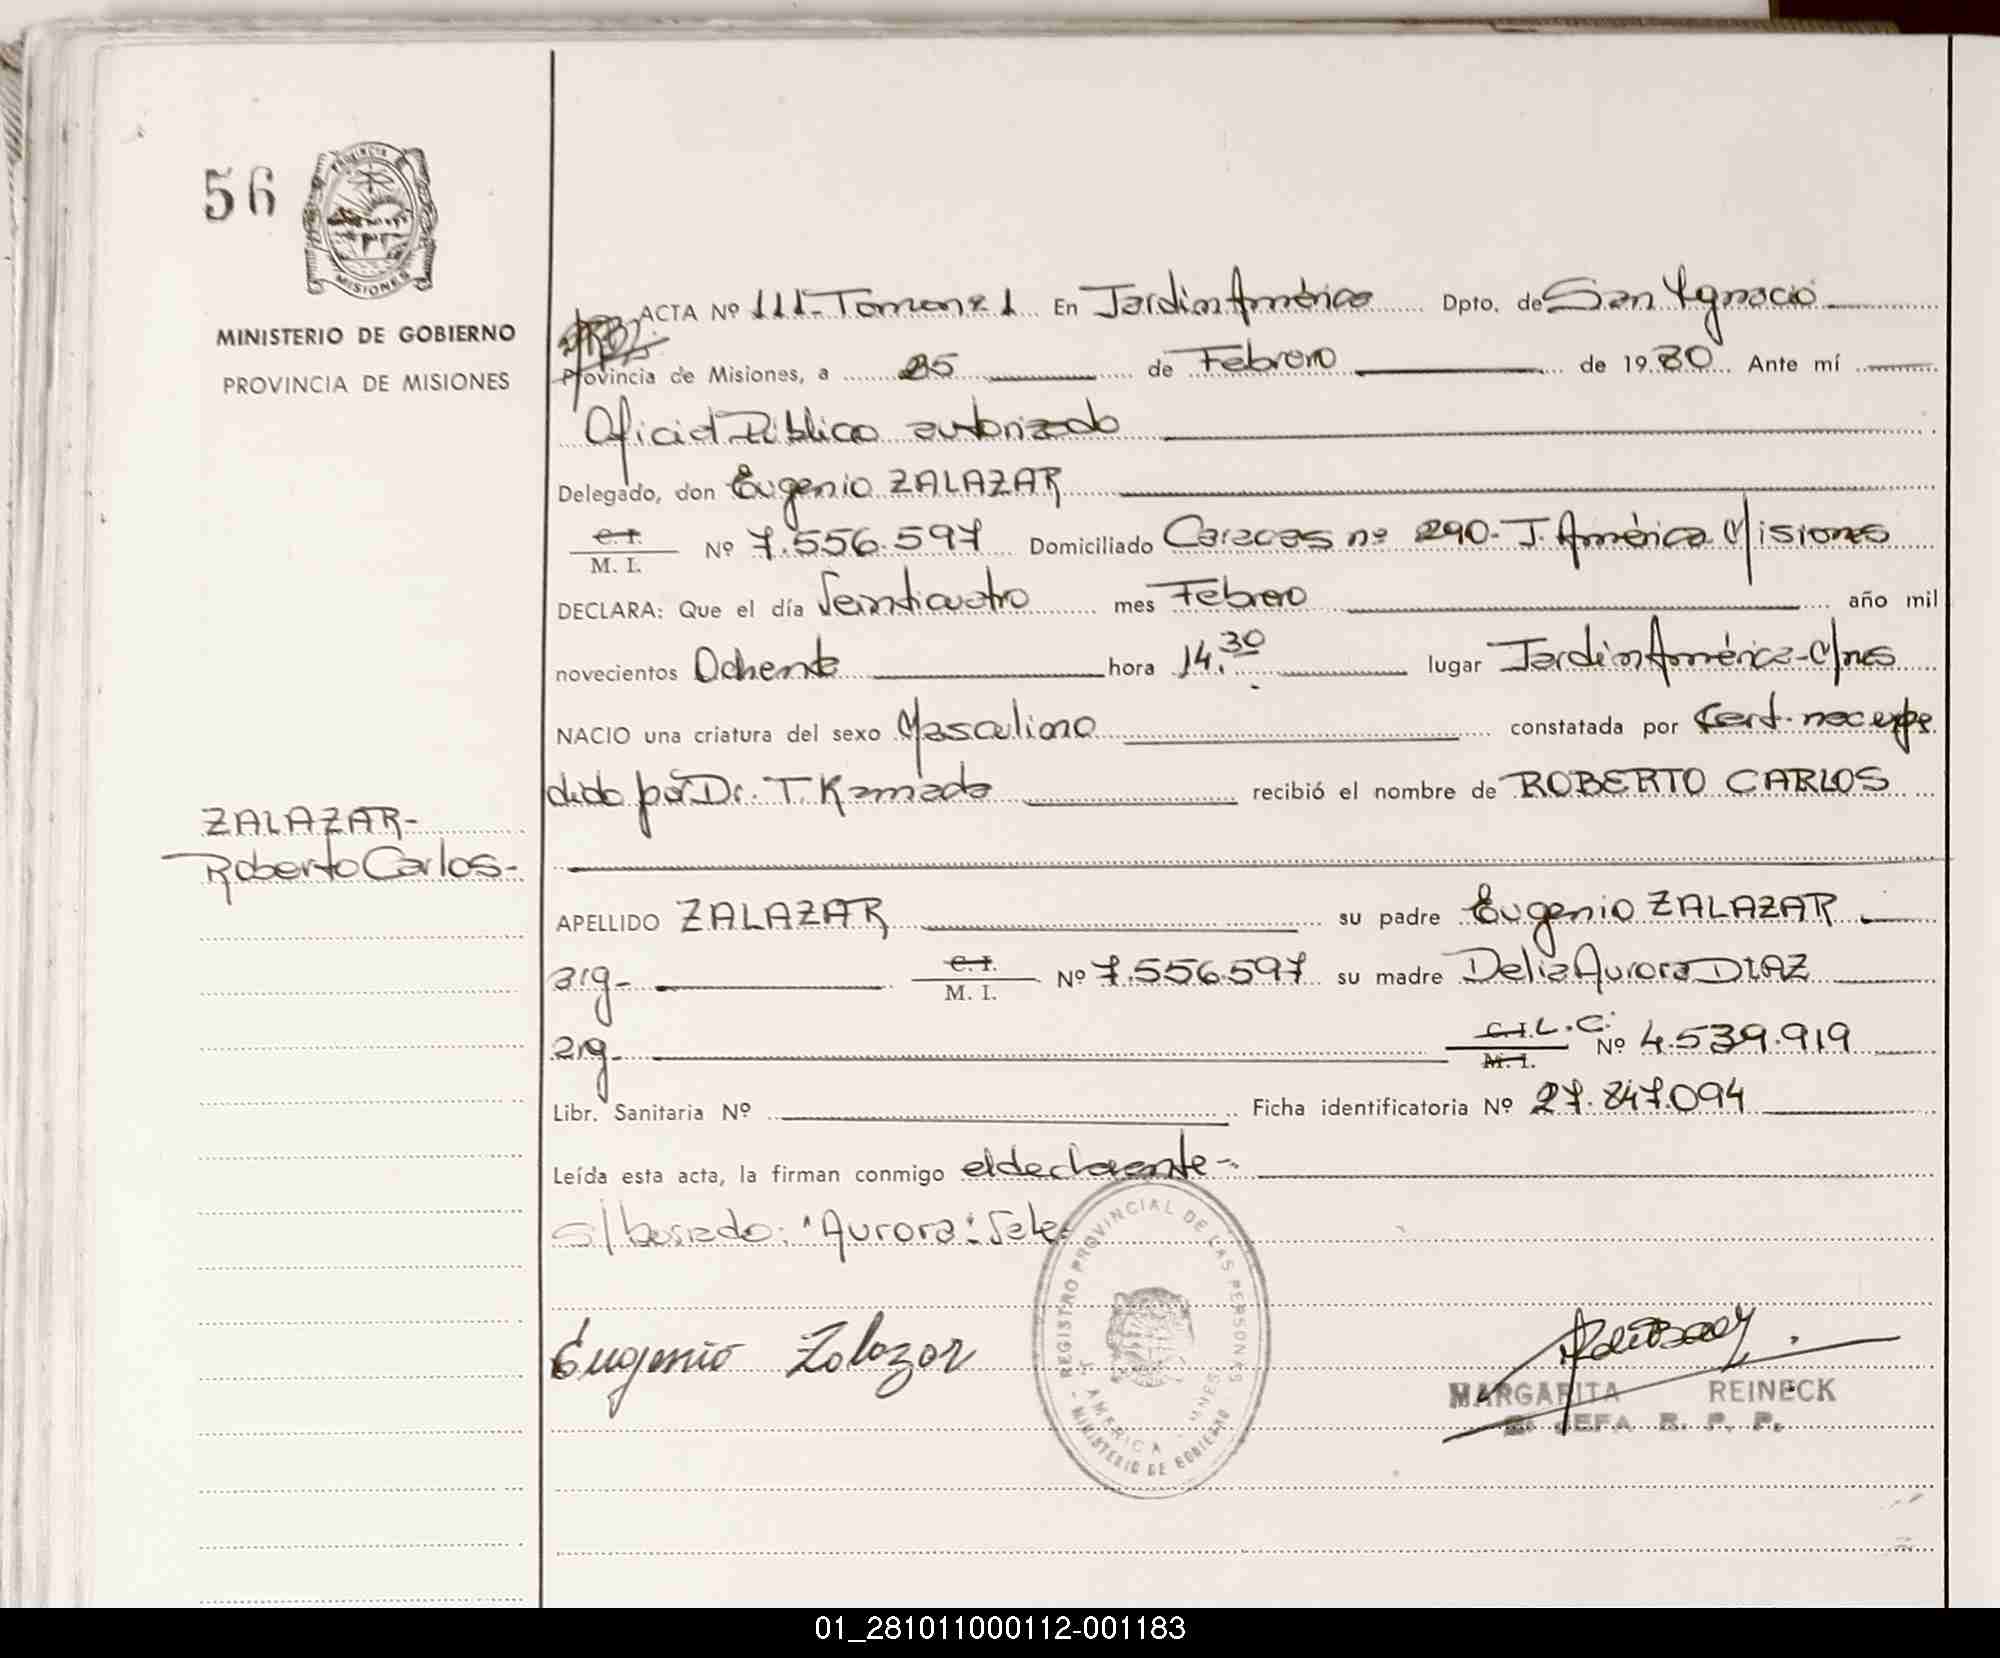 56
PROVINCIA
MISIONES
MINISTERIO DE GOBIERNO
PROVINCIA DE MISIONES
ACTA Nº 111-Tomo nº 1 En Jardin América Dpto. de San Ygnacio
Provincia de Misiones, a 25 de Febrero de 1980 Ante mí
Oficial Público autorizado
Delegado, don Eugenio ZALAZAR
C.I.
M. I. Nº 7.556.597 Domiciliado Caracas nº 290-J. América Misiones
DECLARA: Que el día Veinticuatro mes Febrero año mil
novecientos Ochenta hora 14.30 lugar Jardin América-Mnes
NACIO una criatura del sexo Masculino constatada por Cert. nac expe
dido por Dr. T. Kamada recibió el nombre de ROBERTO CARLOS
ZALAZAR-
Roberto Carlos-
APELLIDO ZALAZAR su padre Eugenio ZALAZAR
arg- C.I. M. I. Nº 7.556.597 su madre Delia Aurora DIAZ
arg- C.I. L.C. M. I. Nº 4.539.919
Libr. Sanitaria Nº Ficha identificatoria Nº 27.847.094
Leída esta acta, la firman conmigo el declarante-
s/borrado: "Aurora": Vale-
Eugenio Zalazar
REGISTRO PROVINCIAL DE LAS PERSONAS
J. AMERICA - MNES
- MINISTERIO DE GOBIERNO -
MARGARITA REINECK
JEFA R. P. P.
01_281011000112-001183